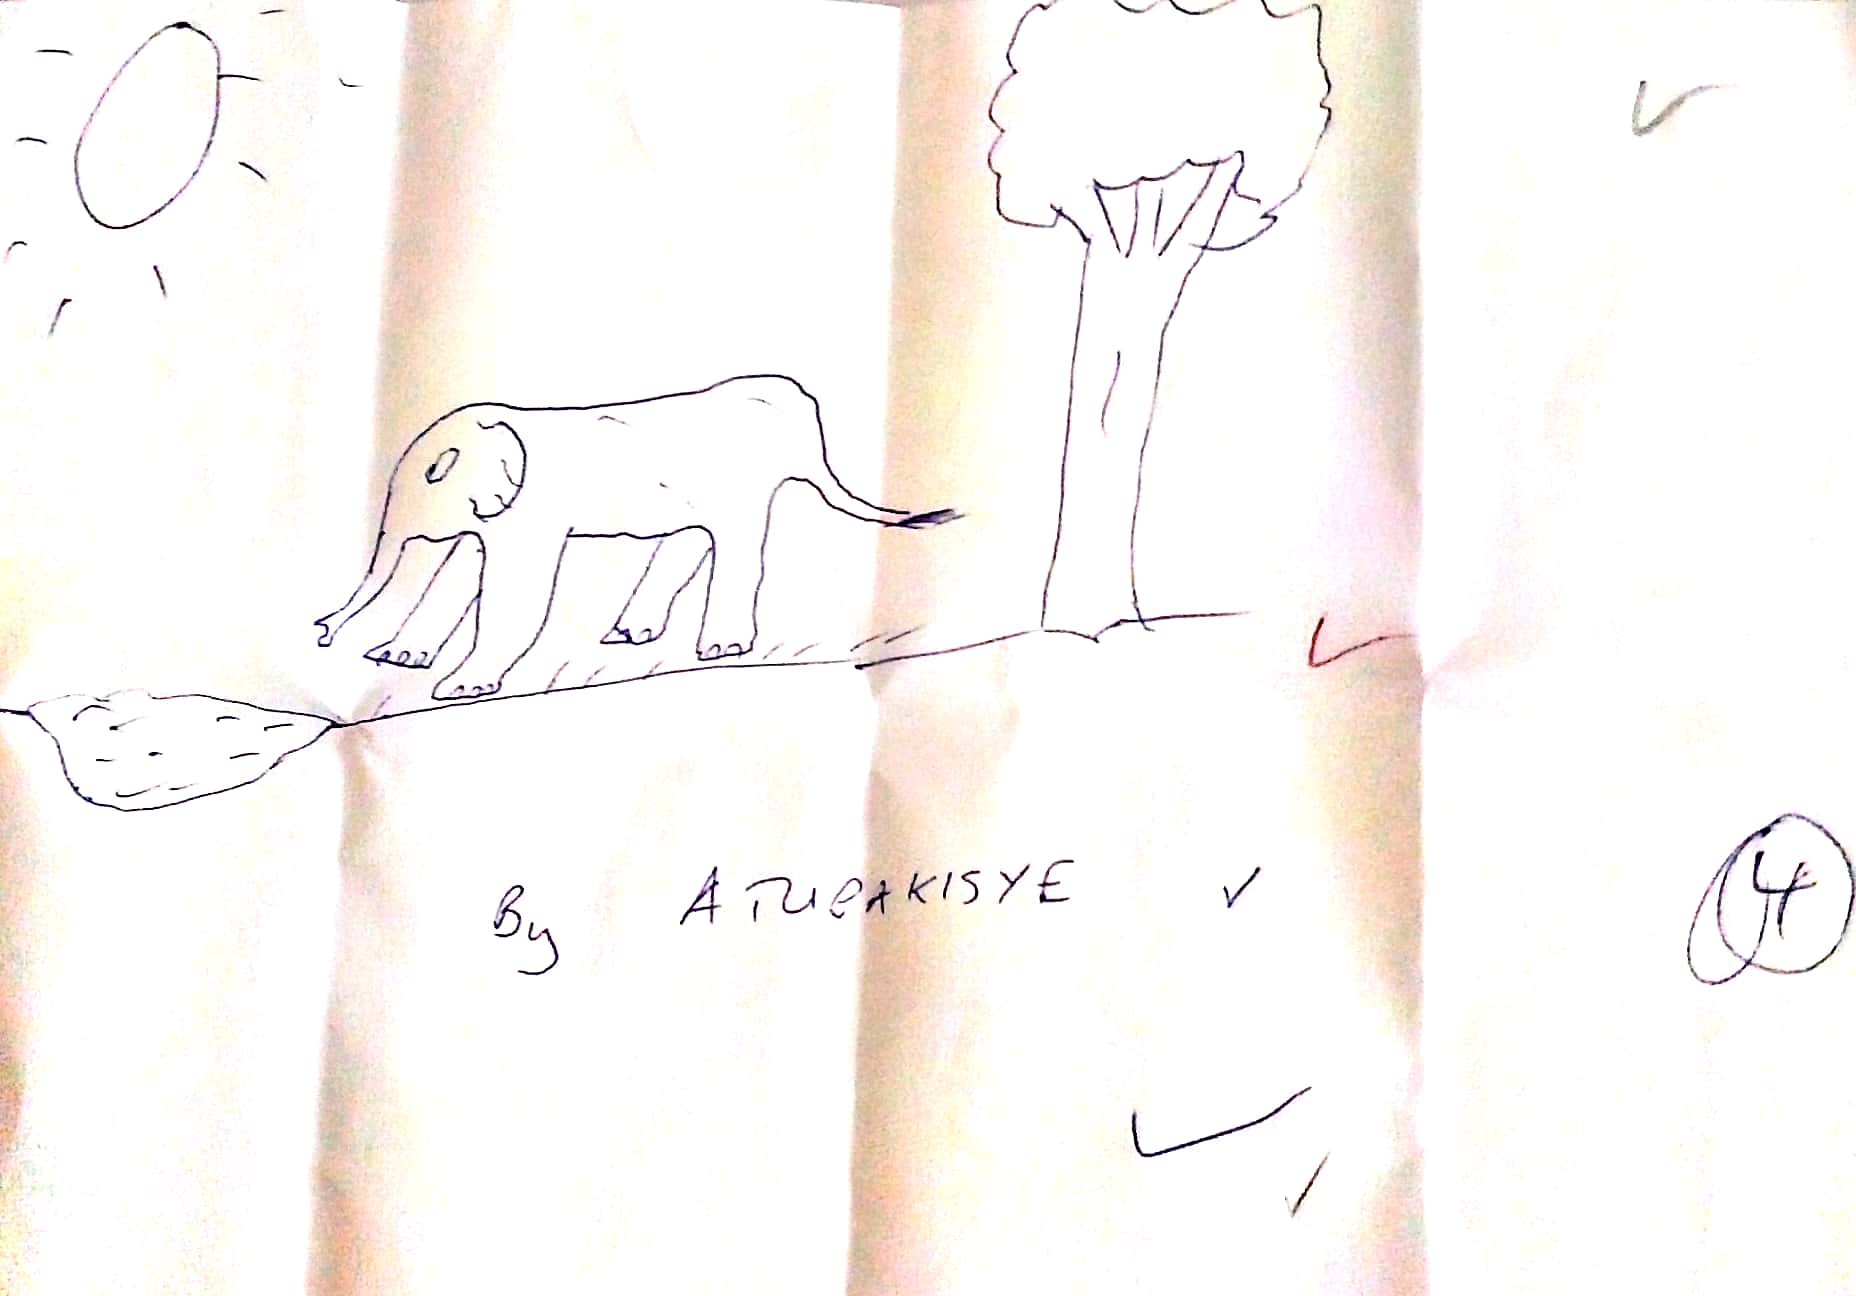 By ATUPAKISYE
4